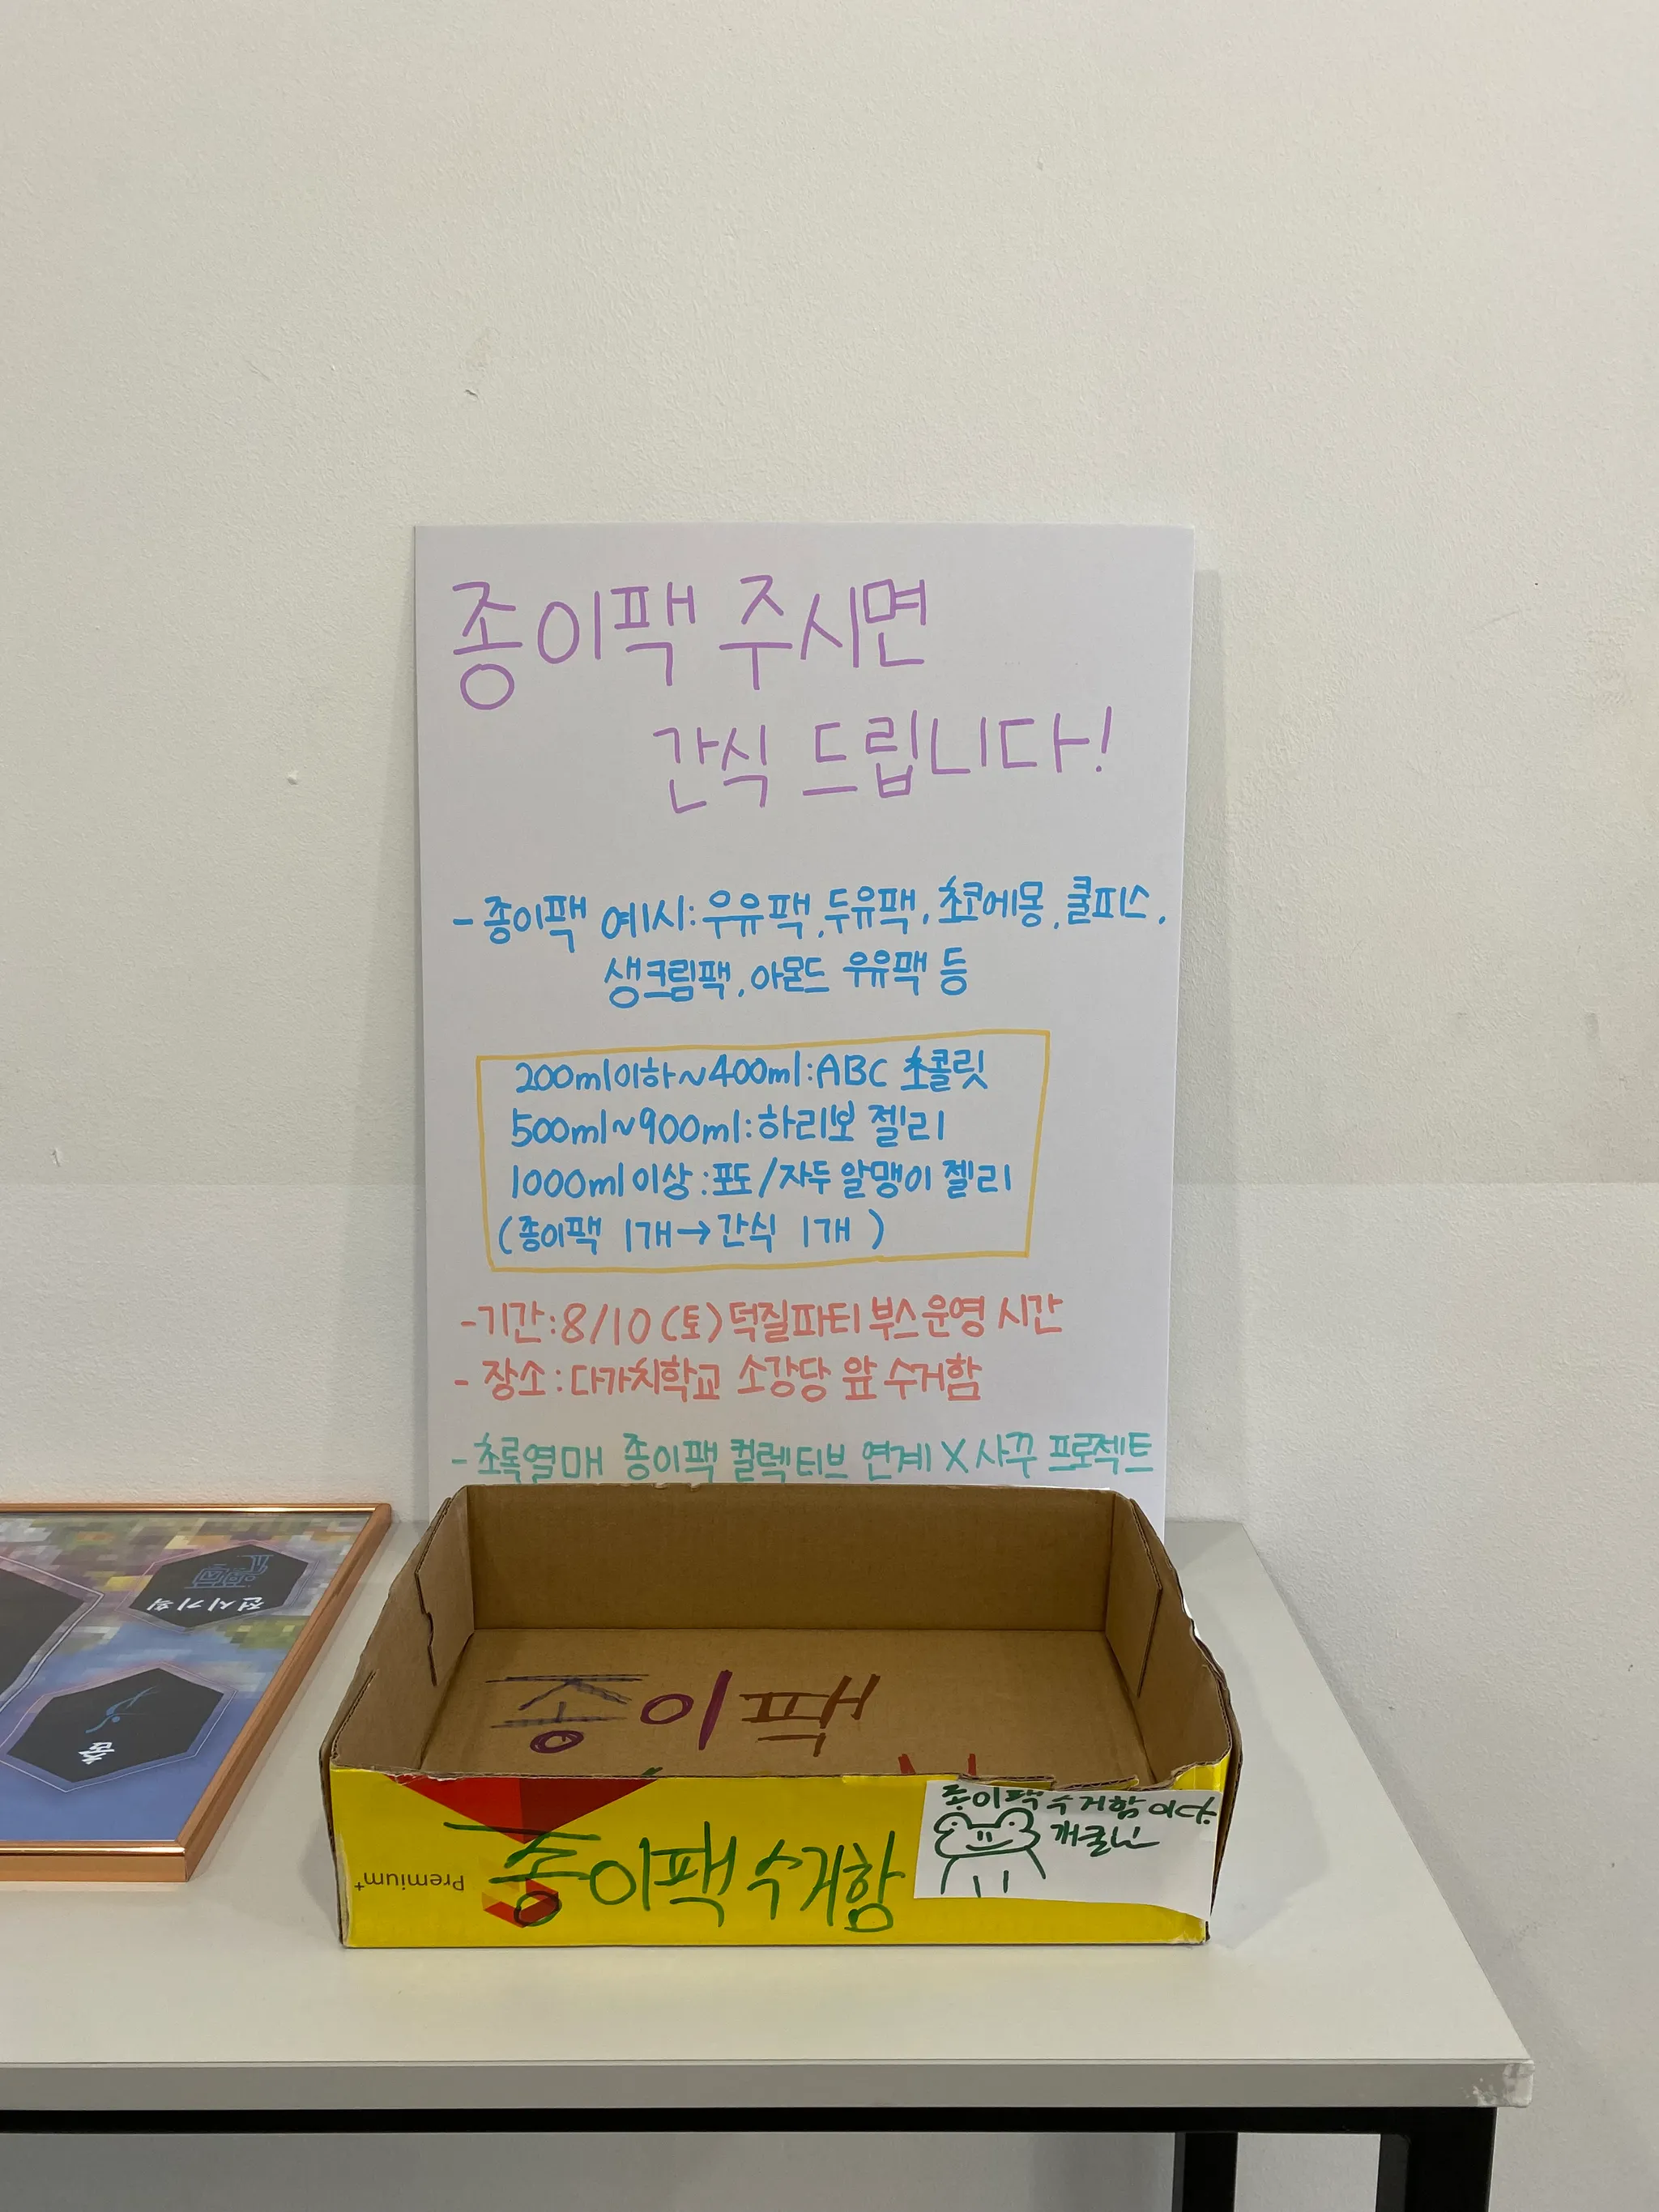 종이팩 주시면
간식 드립니다!
- 종이팩 예시: 우유팩, 두유팩, 초코에몽, 쿨피스,
생크림팩, 아몬드 우유팩 등
200ml이하~400ml: ABC 초콜릿
500ml~900ml: 하리보 젤리
1000ml 이상: 포도/자두 알맹이 젤리
(종이팩 1개→간식 1개)
- 기간: 8/10 (토) 덕질파티 부스운영 시간
- 장소: 다가치학교 소강당 앞 수거함
- 초록열매 종이팩 컬렉티브 연계 X 사꾸 프로젝트
전시기획
춤
종이팩
종이팩 수거함이다.
개굴닌
Premium+
종이팩 수거함